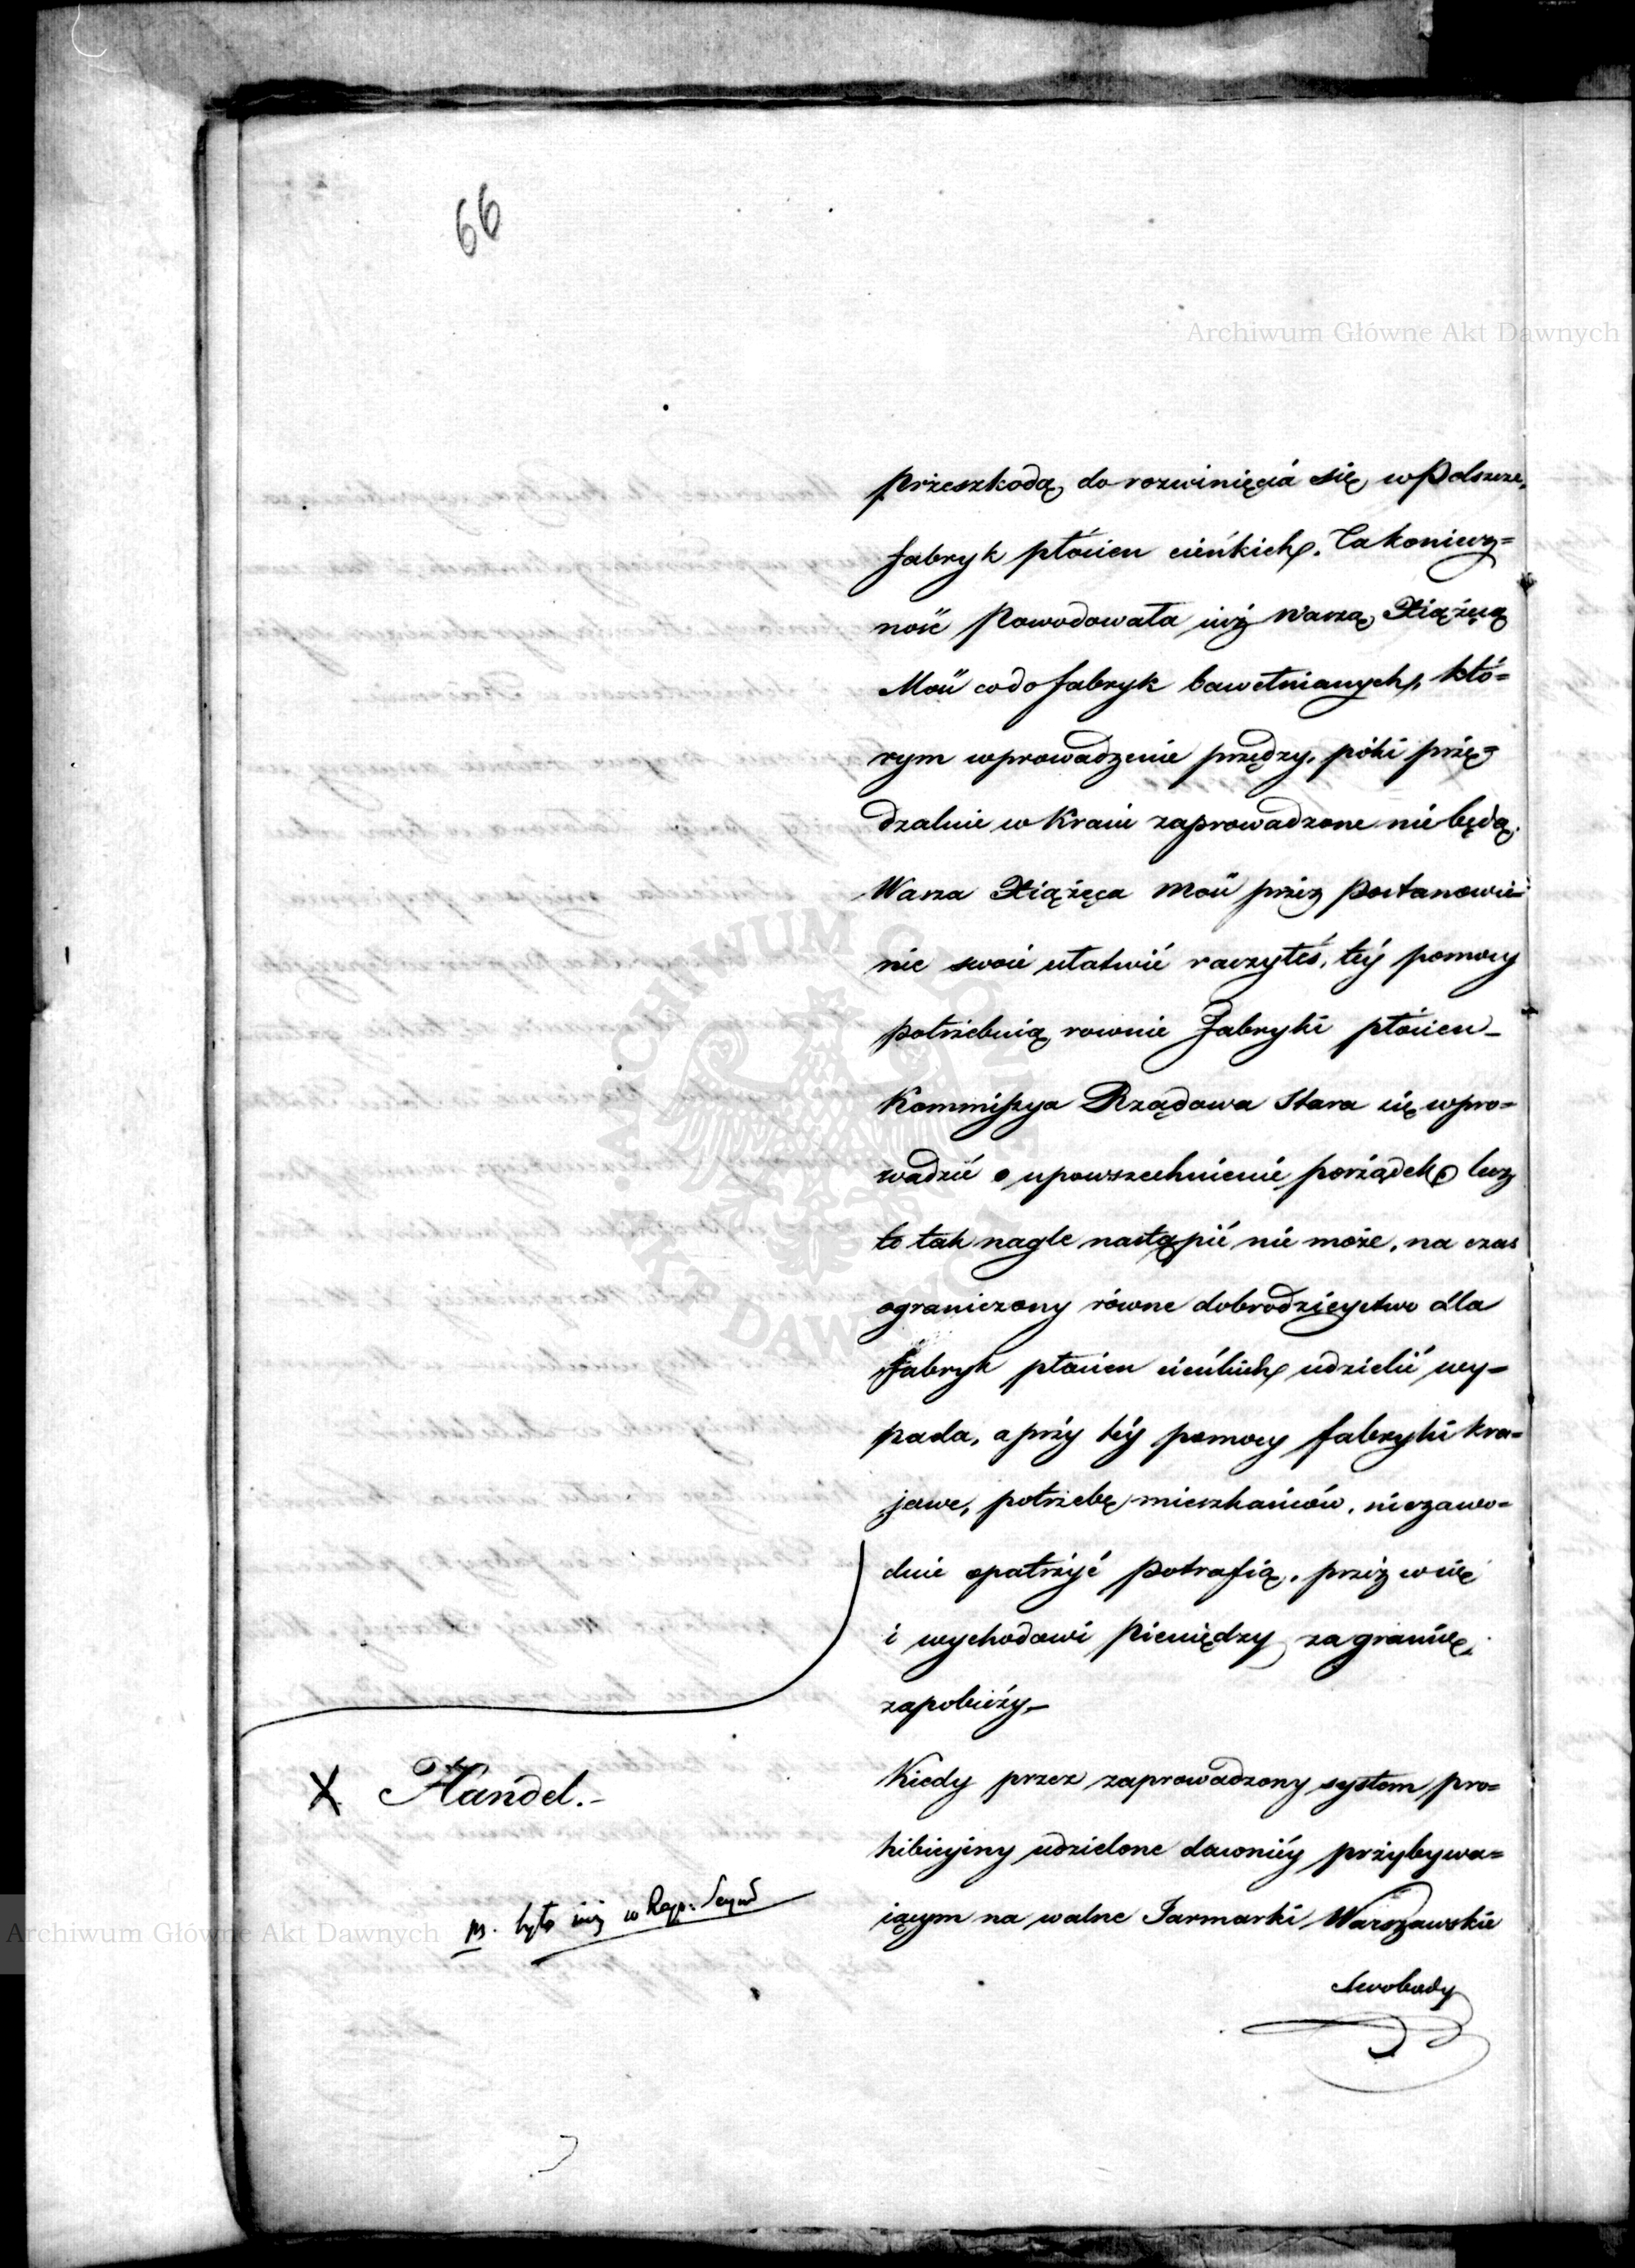 66
Archiwum Główne Akt Dawnych
przeszkodą do rozwinięcia się w Polszcze,
fabryk płócien cieńkich. Ta koniecz=
ność powodowała iuż Waszą Xiążęcą
Mość co do fabryk bawełnianych, któ=
rym wprowadzenie przędzy, póki przę=
dzalnie w Kraiu zaprowadzone nie będą.
Wasza Xiążęca Mość przez postanowie=
nie swoie ułatwić raczyłeś, téy pomocy
potrzebuią rownie Fabryki płócien_
Kommissya Rządowa stara się wpro=
wadzić i upowszechnienie porządek lecz
to tak nagle nastąpić nie może, na czas
ograniczony równe dobrodzieystwo dla
fabryk płócien cieńkich udzielić wy=
pada, a przy téy pomocy fabryki kra=
jowe, potrzebę mieszkańców, niezawo=
dnie opatrzyć potrafią, przez w się
i wychodowi pieniędzy zagranicę,
zapobieży_
X Handel._
Kiedy przez zaprowadzony system pro=
hibicyiny udzielone dawniéy przybywa=
iącym na walne Jarmarki Warszawskie
było iuż w Rapp. Seym
Archiwum Główne Akt Dawnych
Swobody
ARCHIWUM GŁÓWNE AKT DAWNYCH